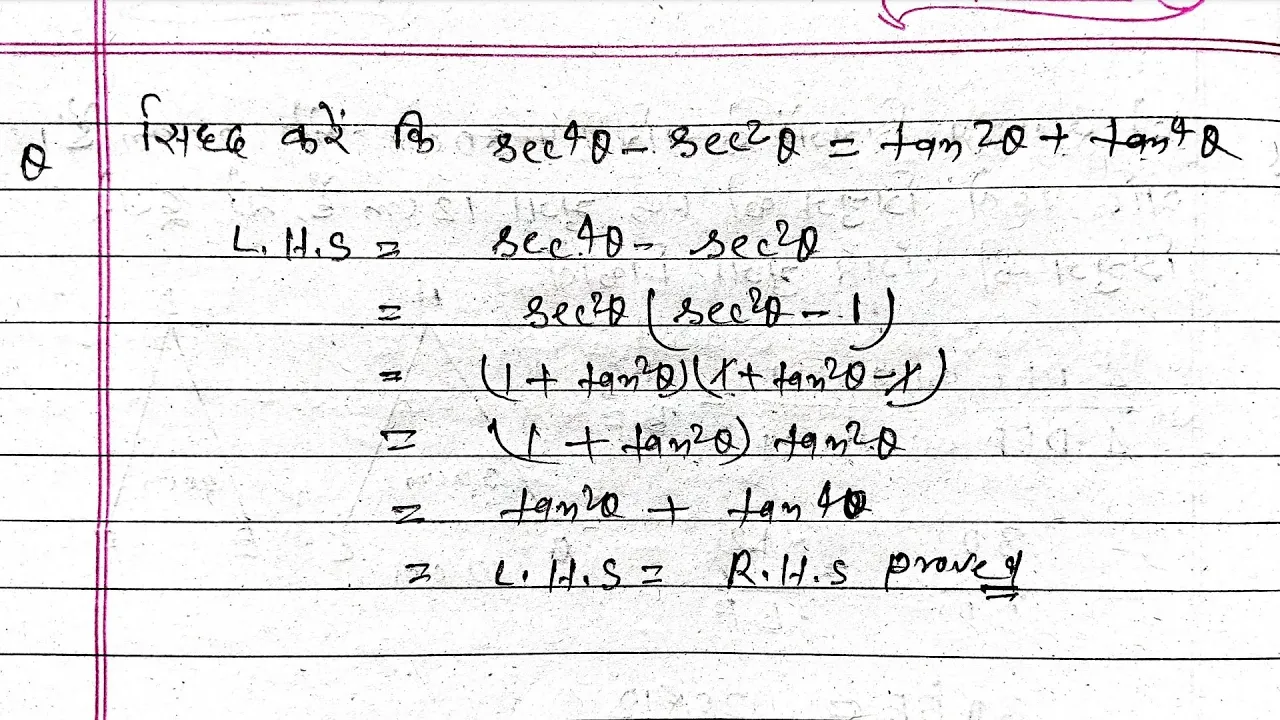 θ सिद्द करें कि sec⁴θ - sec²θ = tan²θ + tan⁴θ
L.H.S = sec⁴θ - sec²θ
= sec²θ (sec²θ - 1)
= (1 + tan²θ)(1 + tan²θ - 1)
= (1 + tan²θ) tan²θ
= tan²θ + tan⁴θ
= L.H.S = R.H.S proved